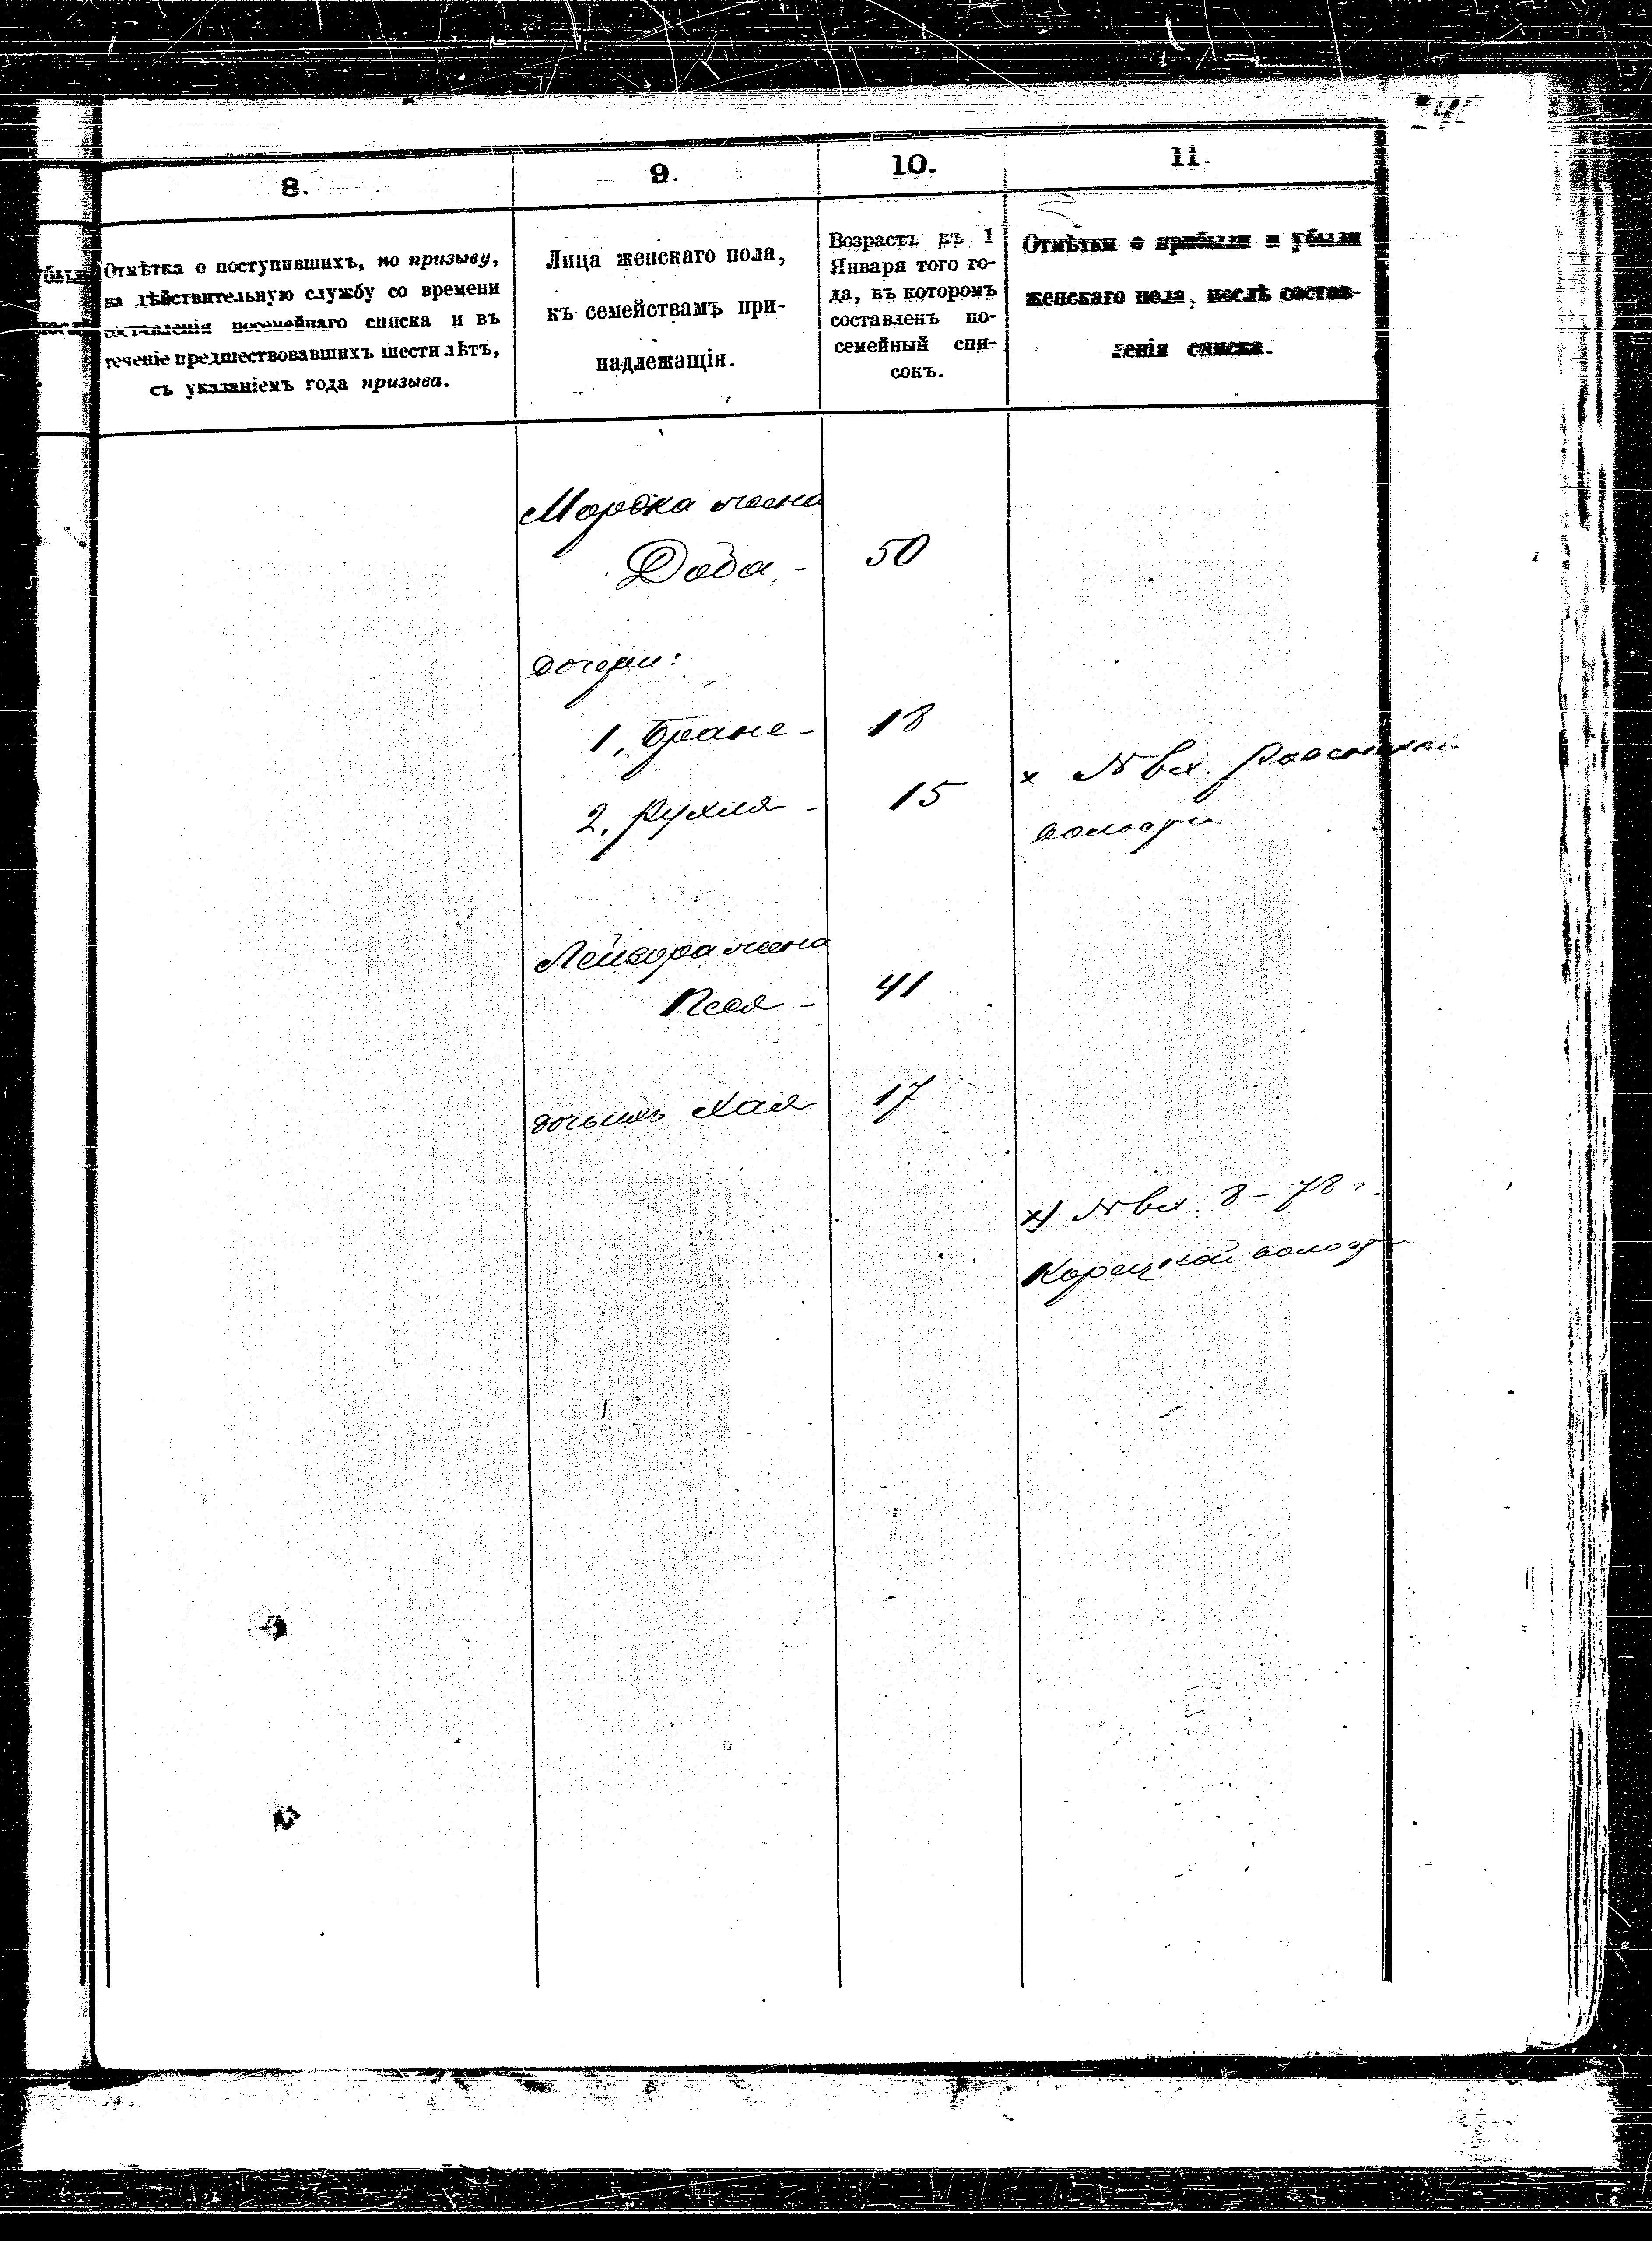 8.
9.
10.
11.
Отмѣтка о поступившихъ, по призыву,
на дѣйствительную службу со времени
составленія посемейнаго списка и въ
теченіе предшествовавшихъ шести лѣтъ,
съ указаніемъ года призыва.
Лица женскаго пола,
къ семействамъ при-
надлежащія.
Возрастъ къ 1
Января того го-
да, въ которомъ
составленъ по-
семейный спи-
сокъ.
Отмѣтки о прибыли и убыли
женскаго пола, послѣ состав-
ленія списка.
Мордка жена
Доба - 50
дочери:
1, Бране - 18
2, Рухля - 15
х № вх.
волости
Лейзора жена
Песя - 41
дочь ихъ Хая 17
х) № вх. 8 - 78 г.
Корецкой волост